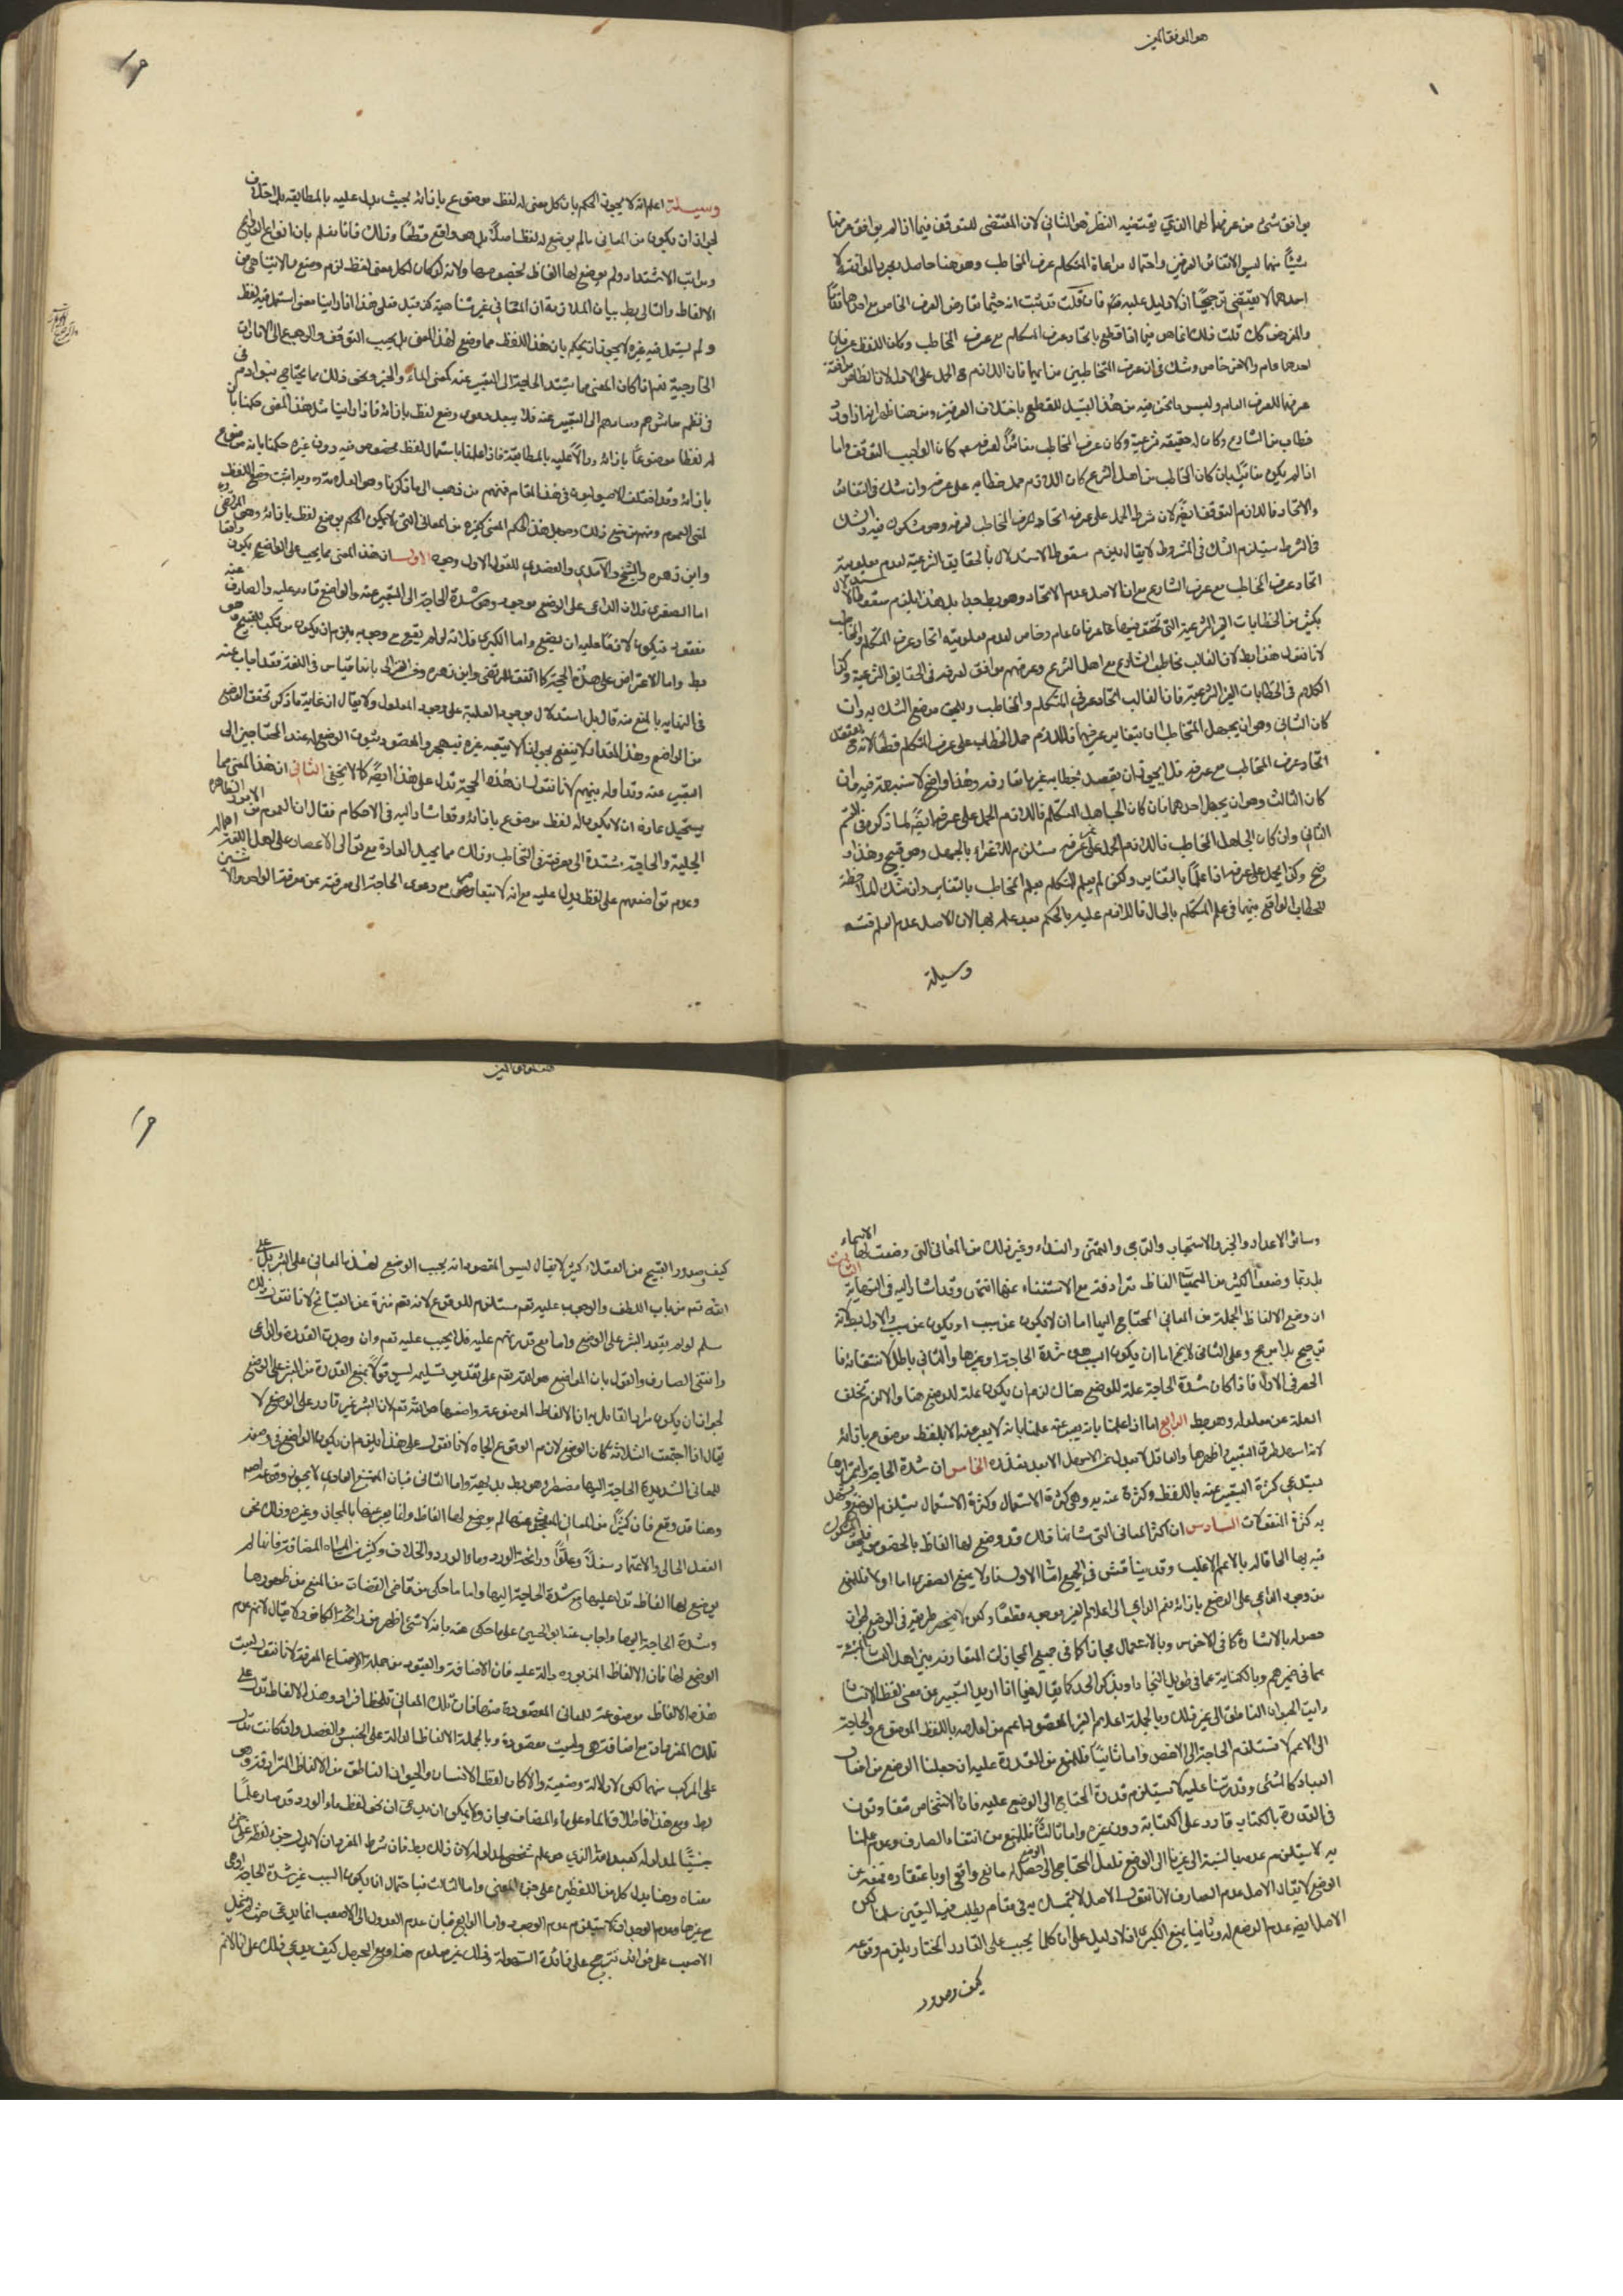 هو الموفق المعين
يوافق شئ من عرفهما لهما الذي يقتضيه النظر هو الثاني لان المقتضى للتوقف فيما اذا لم يوافق عرفهما
شيئا منهما ليس الا تنافي العرفين واحتمال مراعاة المتكلم عرف المخاطب وهو هنا حاصل ومجرد الموافقة لا
احدهما لا يقتضي ترجيحا اذ لا دليل عليه فان قلت قد ثبت انه حيثما تعارض العرف الخاص مع
والمفروض كك قلت ذلك انما هو فيما اذا قطع باتحاد عرف المتكلم مع عرف المخاطب وكان اللفظ عرفان
احدهما عام والاخر خاص وشك في ان عرف المتخاطبين من ايهما فان اللازم ح الحمل على الاول لان الظاهر موافقة
عرفهما للعرف العام وليس ما نحن فيه من هذا القبيل للقطع باختلاف العرفين ومن هنا ظهر انه اذا ورد
خطاب من الشارع وكان له حقيقة شرعية وكان عرف المخاطب مغائرا لعرفه كان الواجب التوقف واما
اذا لم يكن مغائرا بان كان المخاطب من اهل الشرع كان اللازم حمل خطابه على عرفه وان شك في التغاير
والاتحاد فاللازم التوقف ايضا لان شرط الحمل على عرفه اتحاده لعرف المخاطب لعرفه وهو مشكوك فيه والشك
في الشرط يستلزم الشك في المشروط لا يقال يلزم سقوط الاستدلال بالحقايق الشرعية لعدم معلومية
اتحاد عرف المخاطب مع عرف الشارع مع ان الاصل عدم الاتحاد وهو بط جدا بل هذا يلزم سقوط الاستدلال
بكثير من الخطابات الغير الشرعية التي تحقق فيها عرفان عام وخاص لعدم معلومية اتحاد عرف المتكلم والمخاطب
لانا نقول هذا بط لان الغالب تخاطب الشارع مع اهل الشرع وعرفهم موافق لعرفه في الحقايق الشرعية وكذا
الكلام في الخطابات الغير الشرعية فان الغالب اتحاد عرفي المتكلم والمخاطب وليس موضع الشك
كان الثاني وهو ان يجهل المتخاطبان بتغاير عرفيهما فاللازم حمل الخطاب على عرف المتكلم قطعا لانه يعتقد
اتحاد عرف المخاطب مع عرفه فلا يجوز ان يقصد بخطابه غير ما تعارفه وهذا واضح لا شبهة فيه وان
كان الثالث وهو ان يجهل احدهما فان كان الجاهل المتكلم فاللازم الحمل على عرفه ايضا لما ذكر في القسم
الثاني وان كان الجاهل المخاطب فاللازم الحمل على عرفه يستلزم للاغراء بالجهل وهو قبيح وهذا
وضح وكذا يحمل على عرفه اذا علما بالتغاير ولكن لم يعلم المتكلم بعلم المخاطب بالتغاير وان شك
للخطاب الواقع بينهما في علم المتكلم بالحال فاللازم عليه بالحكم بعدم علمه بها لان الاصل عدم
وسيلة
وسيلة اعلم انه لا يجوز الحكم بان كل معنى له لفظ موضوع بازائه بحيث يدل عليه بالمطابقة بل
لجواز ان يكون من المعاني ما لم يوضع له لفظ اصلا بل هو واقع قطعا وذلك فانا نعلم بان انواع الروائح
ومراتب الاشتداد ولم يوضع لها الفاظ بخصوصها ولانه لو كان لكل معنى لفظ لزم وضع ما لا يتناهى من
الالفاظ والتالي بط بيان الملازمة ان المعاني غير متناهية فعلى هذا اذا راينا معنى استعمل فيه لفظ
ولم يستعمل فيه غيره لا يجوز ان يحكم بان هذا اللفظ مما وضع لهذا المعنى بل يجب التوقف والرجوع الى الامارات
الخارجية نعم اذا كان المعنى مما يشتد الحاجة الى التعبير عنه كمعنى الماء والخبز ونحو ذلك مما يحتاج بنوادم في
في نظم معاشهم ومعادهم الى التعبير عنه فلا يبعد دعوى وضع لفظ بازائه فاذا راينا مثل هذا المعنى حكمنا بان
له لفظا موضوعا بازائه ودالا عليه بالمطابقة فاذا علمنا باستعمال لفظ مخصوص فيه دون غيره حكمنا بانه موضوع
بازائه وقد اختلف الاصوليون في هذا المقام فمنهم من ذهب الى ما ذكرنا وهو العلامة وبه اثبت وضع اللفظ
لمعنى العموم ومنهم من منع ذلك وجعل هذا الحكم المعنى كغيره من المعاني التي لا يمكن الحكم بوضع لفظ بازائه وهو المرتضى
وابن زهرة والشيخ والآمدي والعضدي للقول الاول وجوه الاول ان هذا المعنى مما يجب على الواضع
اما الصغرى فلان الداعي على الوضع موجود وهو شدة الحاجة الى التعبير عنه والواضع قادر عليه والصارف عنه
مفقود فيكون لازما عليه ان يضع واما الكبرى فلانه لو لم يقع مع وجوبه يلزم ان يكون مرتكبا للقبيح وهو
بط واما الاعتراض على هذه الحجة كما اتفق للمرتضى وابن زهرة بانها قياس في اللغة فقد اجاب عنه
في النهاية بالمنع منه قال بل استدلال بوجود العلة على وجود المعلول ولا يقال ان غاية ما ذكر تحقق الوضع
من الواضع وهذا المقدار لا ينفع
المعبر عنه وتداوله بينهم لانا نقول ان هذه الحجة تدل على هذا ايضا كما لا يخفى الثاني ان هذا المعنى مما
يستحيل عادة ان لا يكون له لفظ موضوع بازائه وقد اشار اليه في الاحكام فقال ان العموم من الامور الظاهرة
الجلية والحاجة مشتدة الى معرفته في التخاطب وذلك مما يحيل العادة مع توالي الاعصار على اهل اللغة اهماله
وعدم تواضعهم على لفظ يدل عليه مع انه لا يتقاصر مع دعوى الحاجة الى معرفته عن معرفة الواحد والاثنين
وسائر الاعداد والخبر والاستخبار والترجي والتمني والنداء وغير ذلك من المعاني التي وضعت لها الاسماء
بل ربما وضعوا لكثير من المسميات الفاظ مترادفة مع الاستغناء عنها انتهى وقد اشار اليه في النهاية الثالث
ان وضع الالفاظ الجملة من المعاني المحتاج اليها اما ان لا يكون عن سبب او يكون عن سبب والاول بط لانه
ترجيح بلا مرجح وعلى الثاني لا يخ اما ان يكون السبب هو شدة الحاجة او غيرها والثاني باطل لانتفائه
الحصر في الاول فاذا كان شدة الحاجة علة للوضع هناك لزم ان يكون علة للوضع هنا والا لزم تخلف
العلة عن معلوله وهو بط الرابع اما اذا علمنا بانه يعبر عنه علمنا بانه لا يعبر عنه الا بلفظ موضوع بازائه
لانه اسهل طرق التعبير واظهرها والعاقل لا يعدل عن الاسهل الا بعد تعذره الخامس ان شدة الحاجة
يستدعي كثرة التعبير عنه باللفظ وكثرة عنه به وهي كثرة الاستعمال وكثرة الاستعمال يستلزم الوضع
به كثرة المنقولات السادس ان اكثر المعاني التي شانها ذلك قد وضع لها الفاظ بالخصوص فيلحق المشكوك
فيه بها الحاقا له بالاعم الاغلب وقد يناقش في الجميع اما الاول فبمنع الصغرى اما اولا فللمنع
من وجود الداعي على الوضع بازائه نعم الداعي الى اعلام الغير موجود قطعا ولكن لا ينحصر طريقه في الوضع لجواز
حصوله بالاشارة كما في الاخرس وبالاستعمال مجازا كما في جميع المجازات المتعارفة بين اهل اللسان
مما في ضميرهم وبالكناية كما في طويل النجاد او بذكر الحد كما يقال فيما اذا اريد التعبير عن معنى لفظ الانسان
رايت الحيوان الناطق الى غير ذلك وبالجملة اعلام الغير المقصود اعم من اعلامه باللفظ الموضوع والحاجة
الى الاعم لا تستلزم الحاجة الى الاخص واما ثانيا فللمنع من القدرة عليه ان جعلنا الوضع من افعال
العباد كالمشي وقدرتنا عليه لا يستلزم قدرة المحتاج الى الوضع عليه فان الاشخاص متفاوتون
في القدرة بالكتابة قادر على الكتابة دون غيره واما ثالثا فللمنع من انتفاء الصارف وعدم علمنا
به لا يستلزم عدمه بالنسبة الى غيرنا الى الواضع فلعل المحتاج الى الوضع حصل له مانع واقعي او باعتقاده
الوضع لا يقال الاصل عدم الصارف لانا نقول الاصل لا يتمسك به في مقام يطلب فيها اليقين سلمنا لكن
الاصل ايضا عدم الوضع له وثانيا بمنع الكبرى اذ لا دليل على ان كلما يجب على القادر المختار يلزم وقوعه
كيف وصدور
كيف وصدور القبيح من العقلاء كثير لا يقال ليس المقصود انه يجب الوضع لهذه المعاني على البشر بل على
الله تعم من باب اللطف والوجوب عليه تعم مستلزم للوقوع لانه تعم منزه عن القبائح لانا نقول ذلك
سلم لو لم يقدر البشر على الوضع واما مع قدرتهم عليه فلا يجب عليه تعم وان وجدت القدرة والداعي
وانتفى الصارف والقول بان الواضع هو الله تعم على تقدير تسليمه ليس قولا بمنع القدرة من البشر على الوضع
لجواز ان يكون مراد القائل به ان الالفاظ الموضوعة واضعها هو الله تعم لان البشر غير قادر على الوضع لا
يقال اذا اجتمعت الثلاثة كان الوضع لازم الوقوع لانا نقول على هذا يلزم ان يكون الواضع في وضعه
للمعاني الشديدة الحاجة اليها مضطرا وهو بط بديهة واما الثاني فبان الممتنع العادي لا يجوز وقوعه اصلا
وهنا قد وقع فان كثيرا من المعاني لم يوضع لها الفاظ وانما يعبر عنها بالمجاز وغيره وذلك نحو
الفعل الحالي والاعتماد سفلا وعلوا ورائحة الورد وماء الورد والخلاف وكثير من المياه المضافة فانها لم
يوضع لها الفاظ تدل عليها مع شدة الحاجة اليها واما ما حكي عن قاضي القضات من المنع من ظهورها
وشدة الحاجة اليها واجاب عنه ابو الحسين على ما حكي عنه بانه لا شئ اظهر من رائحة الكافور
الوضع لها فان الالفاظ المزبورة دالة عليه فان الاضافة والقيود من جملة الاوضاع المعرفة لانا نقول ليست
هذه الالفاظ موضوعة للمعاني المقصودة منها فان تلك المعاني تلحظ افرادا وهذه الالفاظ تدل على
تلك المفردات مع اضافة هي وليست مقصودة وبالجملة الالفاظ الدالة على الجنس والفصل وان كانت تدل
على المركب منهما لكن لا دلالة وضعية والا كان لفظ الانسان والحيوان الناطق من الالفاظ المترادفة وهو
بط ومع هذا فاطلاق الماء على ماء المضاف مجاز ولا يمكن ان يدعى ان نحو لفظ ماء الورد قد صار علما
جنسيا لمدلوله كعبد الله الذي هو علم شخصي لمدلوله لان ذلك بط فان شرط المفرد ان لا يدل جزء لفظه على جزء
معناه وهنا يدل كل من اللفظين على جزء المعنى واما الثالث فبا حتمال ان يكون السبب غير شدة الحاجة
مع غيرها وعدم الوجدان لا يستلزم عدم الوجود واما الرابع فبان عدم العدول الى الاصعب انما يدعى حيث
الاصعب على فوائد تترجح على فائدة السهولة وذلك غير معلوم هنا ومع الجهل كيف يدعى ذلك